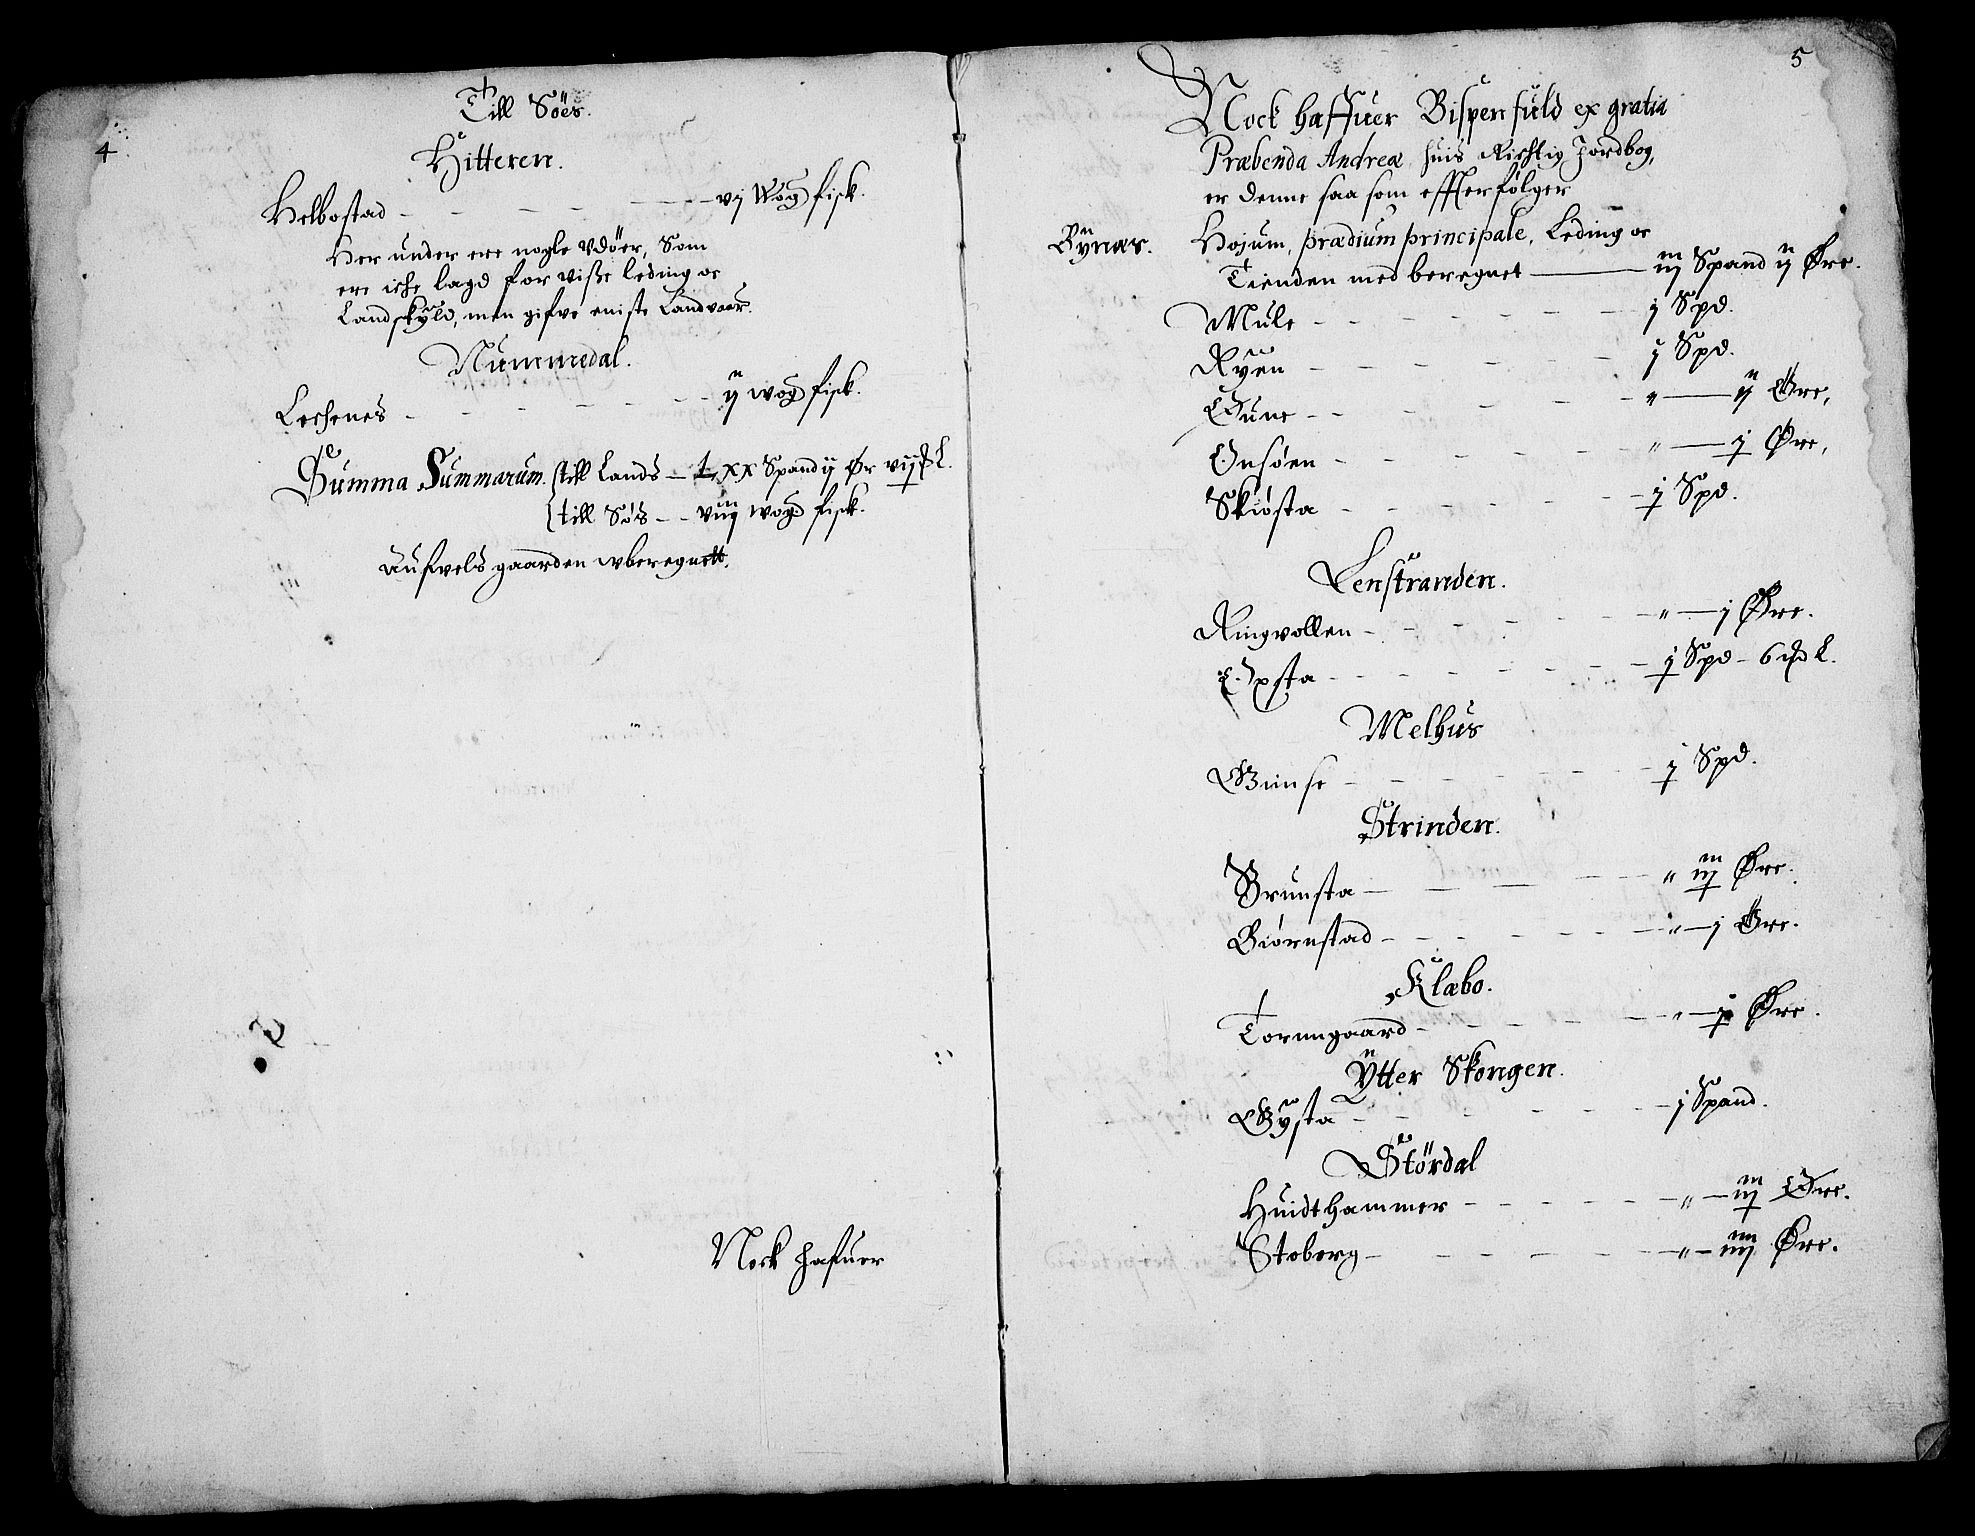 4
Till Söes.
Hitteren.
Helbostad - - - - - - - vj Wog fisk.
Her under ere nogle Vdöer, Som
ere iche lagd for visse leding oc
Landskyld, men gifve eniste Landvaar.
Nummedal.
Lechenes - - - - - - - ij wog fisk.
Summa Summarum. till Lands — Lxx Spand ij Ør vij L.
till Söes - - viij wog fisk.
Aufvels gaarden wberegnett.
Nock hafuer
5
Nock haffuer Bispen fuld ex gratia
Præbenda Andreæ huis Richtig Jordbog,
er denne saa som effterfølger
Bynæs. Hojum, prædium principale, Leding oc
Tienden med beregnet — iij Spand ij Øre.
Mule - - - - - - - j Spd.
Ryen - - - - - j Spd.
Oune - - - - - - " — ij Øre,
Onsøen - - - - - - " — j Øre,
Skiøsta - - - - - - j Spd.
Lenstranden.
Ringvollen - - - - - - " — j Øre.
Oxsta - - - - - - j Spd - 6 L.
Melhus
Gimse - - - - - - j Spd.
Strinden.
Brunsta - - - - - " iij Øre.
Biørnstad - - - - - - " — j Øre.
Klæbo.
Tormgaard - - - - - " — j Øre.
Ÿtter Skongen.
Gÿsta - - - - - j Spand.
Stördal
Huidthammer - - - - - " — iij Øre.
Stoberg - - - - - " — iiij Øre.